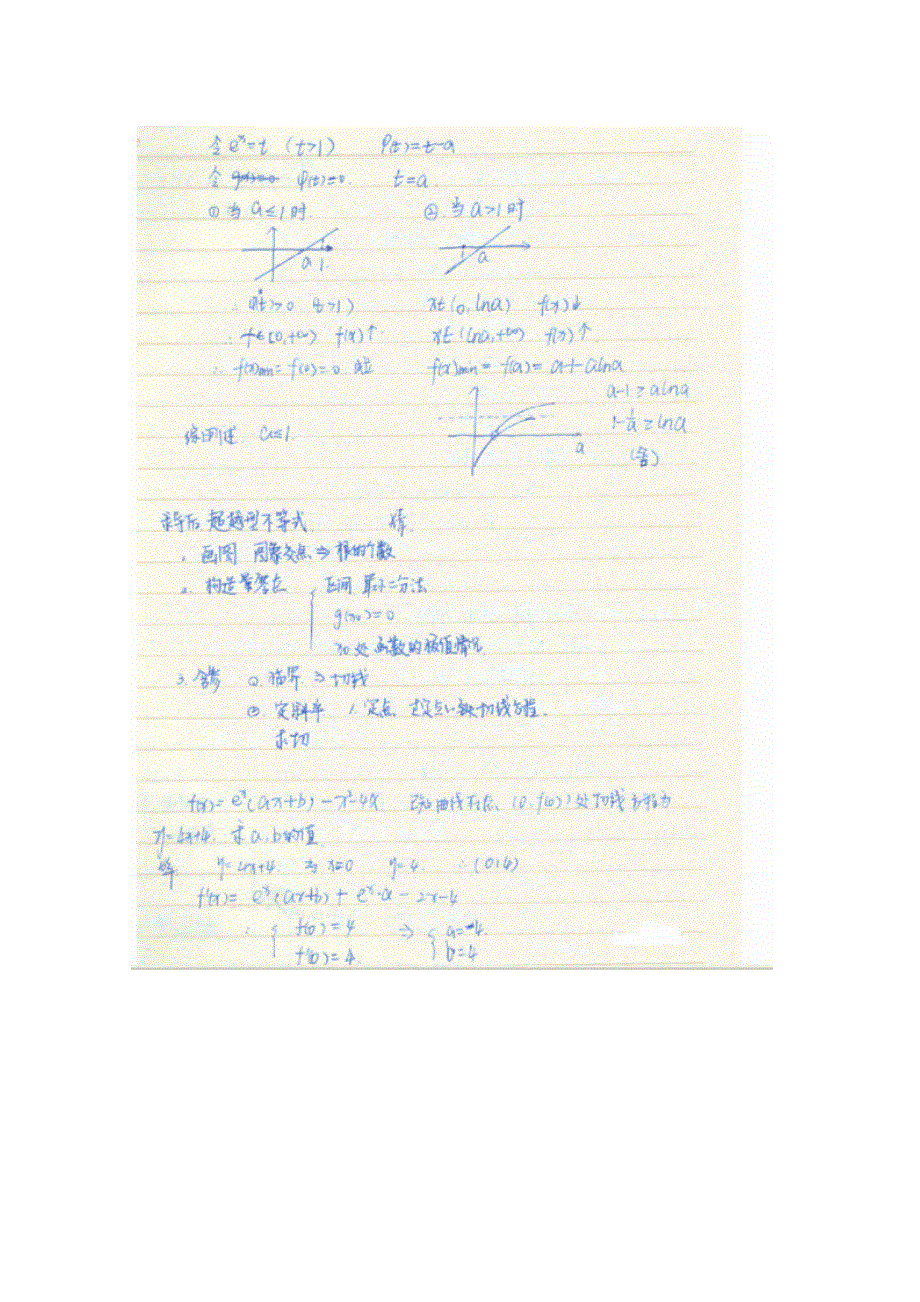 令 eˣ=t (t>1) φ(t)=t-a
令 φ(t)=0. t=a.
① 当 a≤1时. ② 当 a>1时
a 1. 1 a
∴ φ(t)>0 (t>1) x∈(0, lna) f(x)↓
∴ [0,+∞) f(x)↑ x∈(lna,+∞) f(x)↑
∴ f(x)min=f(0)=0 成立 f(x)min= f(a)= a-1-alna
a-1≥alna
1-1/a≥lna
(舍)
a
综上所述 a≤1.
求导后 超越型不等式.
1. 画图 图象交点⇒根的个数
2. 构造 零点 区间 二分法
g(x₀)=0
x₀处 函数的极值情况
3. 含参 ①. 临界⇒切线
②. 定斜率 1.定点、过定点 切线方程.
求切
f(x)=eˣ(ax+b)-x²-4x 曲线 点、(0,f(0))处切线方程为
y=4x+4. 求a,b的值
解 y=4x+4 当 x=0 y=4. ∴(0,4)
f'(x)=eˣ(ax+b)+eˣ·a-2x-4
∴ { f(0)=4 ⇒ { a=4.
f'(0)=4. b=4